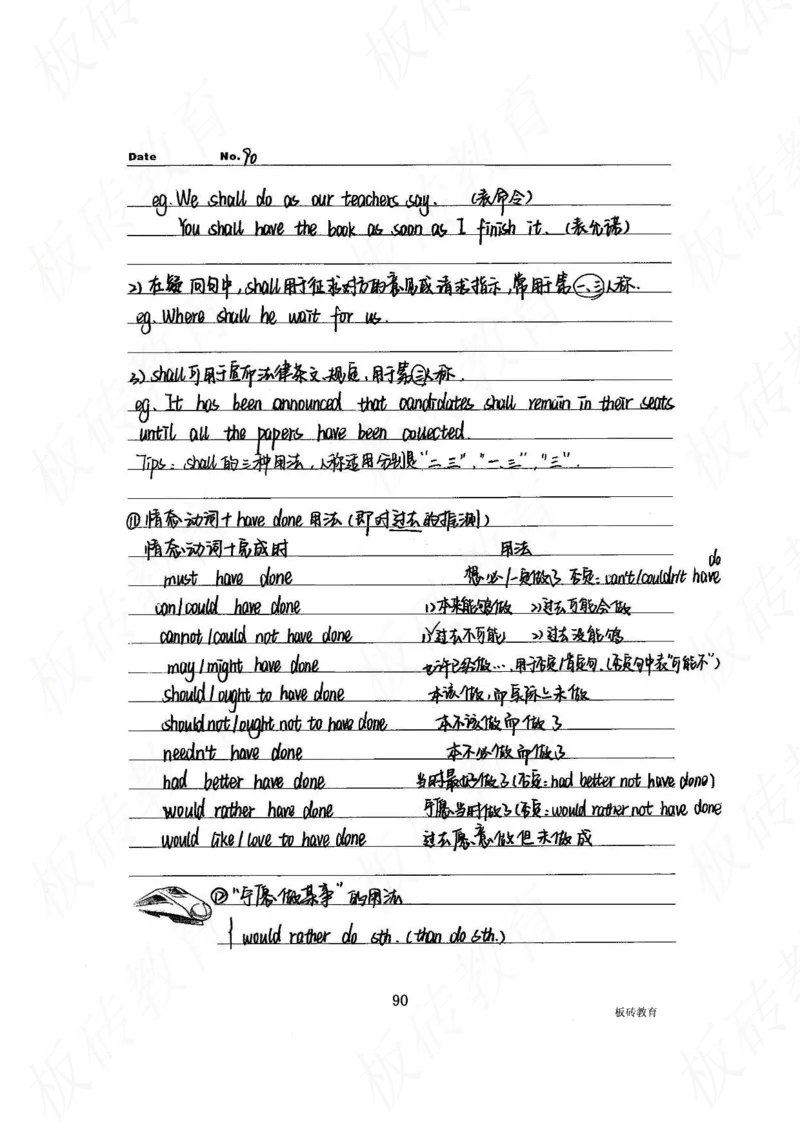 Date No. 90
eg. We shall do as our teachers say. (表命令)
You shall have the book as soon as I finish it. (表允诺)
2) 在疑问句中, shall用于征求对方的意见或请求指示, 常用于第一、三人称.
eg. Where shall he wait for us.
3) shall可用于宣布法律条文、规定, 用于第三人称.
eg. It has been announced that candidates shall remain in their seats
until all the papers have been collected.
Tips: shall的三种用法, 人称适用分别是“二、三”, “一、三”, “三”.
⑪ 情态动词+have done用法 (即对过去的推测)
情态动词+完成时 用法
must have done 想必/一定做了 否定: can't/couldn't have do
can/could have done 1)本来能够做 2)过去可能会做
cannot/could not have done 1)过去不可能 2)过去没能够
may/might have done 也许已经做…, 用于否定/肯定句. (否定句中表“可能不”)
should/ought to have done 本该做, 即实际上未做
should not/ought not to have done 本不该做却做了
needn't have done 本不必做却做了
had better have done 当时最好做了 (否定: had better not have done)
would rather have done 宁愿当时做了 (否定: would rather not have done
would like/love to have done 过去愿意做但未做成
⑫ “宁愿做某事”的用法
would rather do sth. (than do sth.)
90
板砖教育